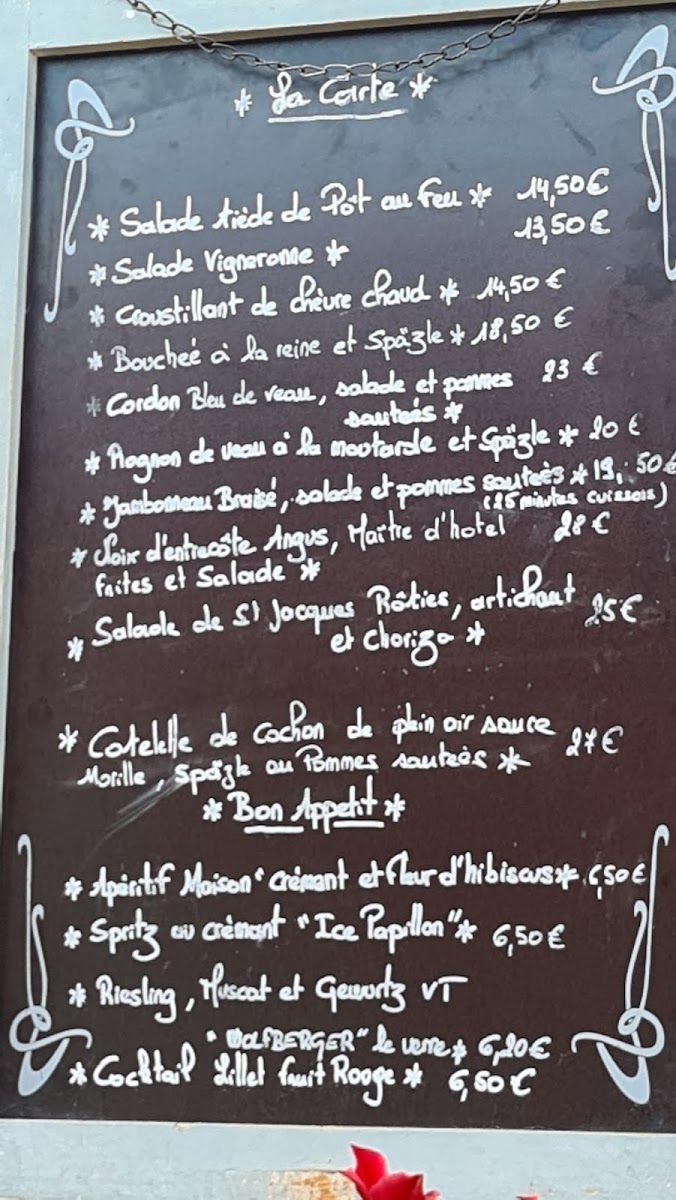 * La Carte *
* Salade tiède de Pôt au Feu * 14,50 €
* Salade Vigneronne * 13,50 €
* Croustillant de chèvre chaud * 14,50 €
*Boucheé à la reine et Späzle * 18,50 €
* Cordon Bleu de veau, salade et pommes 23 €
sauteés *
* Rognon de veau à la moutarde et Späzle * 20 €
* Jambonneau Braisé, salade et pommes sauteès * 19,50 €
(25 minutes cuissois)
* Noix d'entrecôte Angus, Maître d'hotel 28 €
frites et Salade *
* Salade de St Jacques Rôties, artichaut 25 €
et Chorizo *
* Cotelette de cochon de plein air sauce 27 €
Morille, Späzle ou Pommes sauteès *
* Bon Appetit *
* Apéritif Maison " Crémant et fleur d'hibiscus * 6,50 €
* Spritz au crèmant "Ice Papillon" * 6,50 €
* Riesling, Muscat et Gewurtz VT
"WOLFBERGER" le verre * 6,20 €
* Cocktail Lillet fruit Rouge * 6,50 €